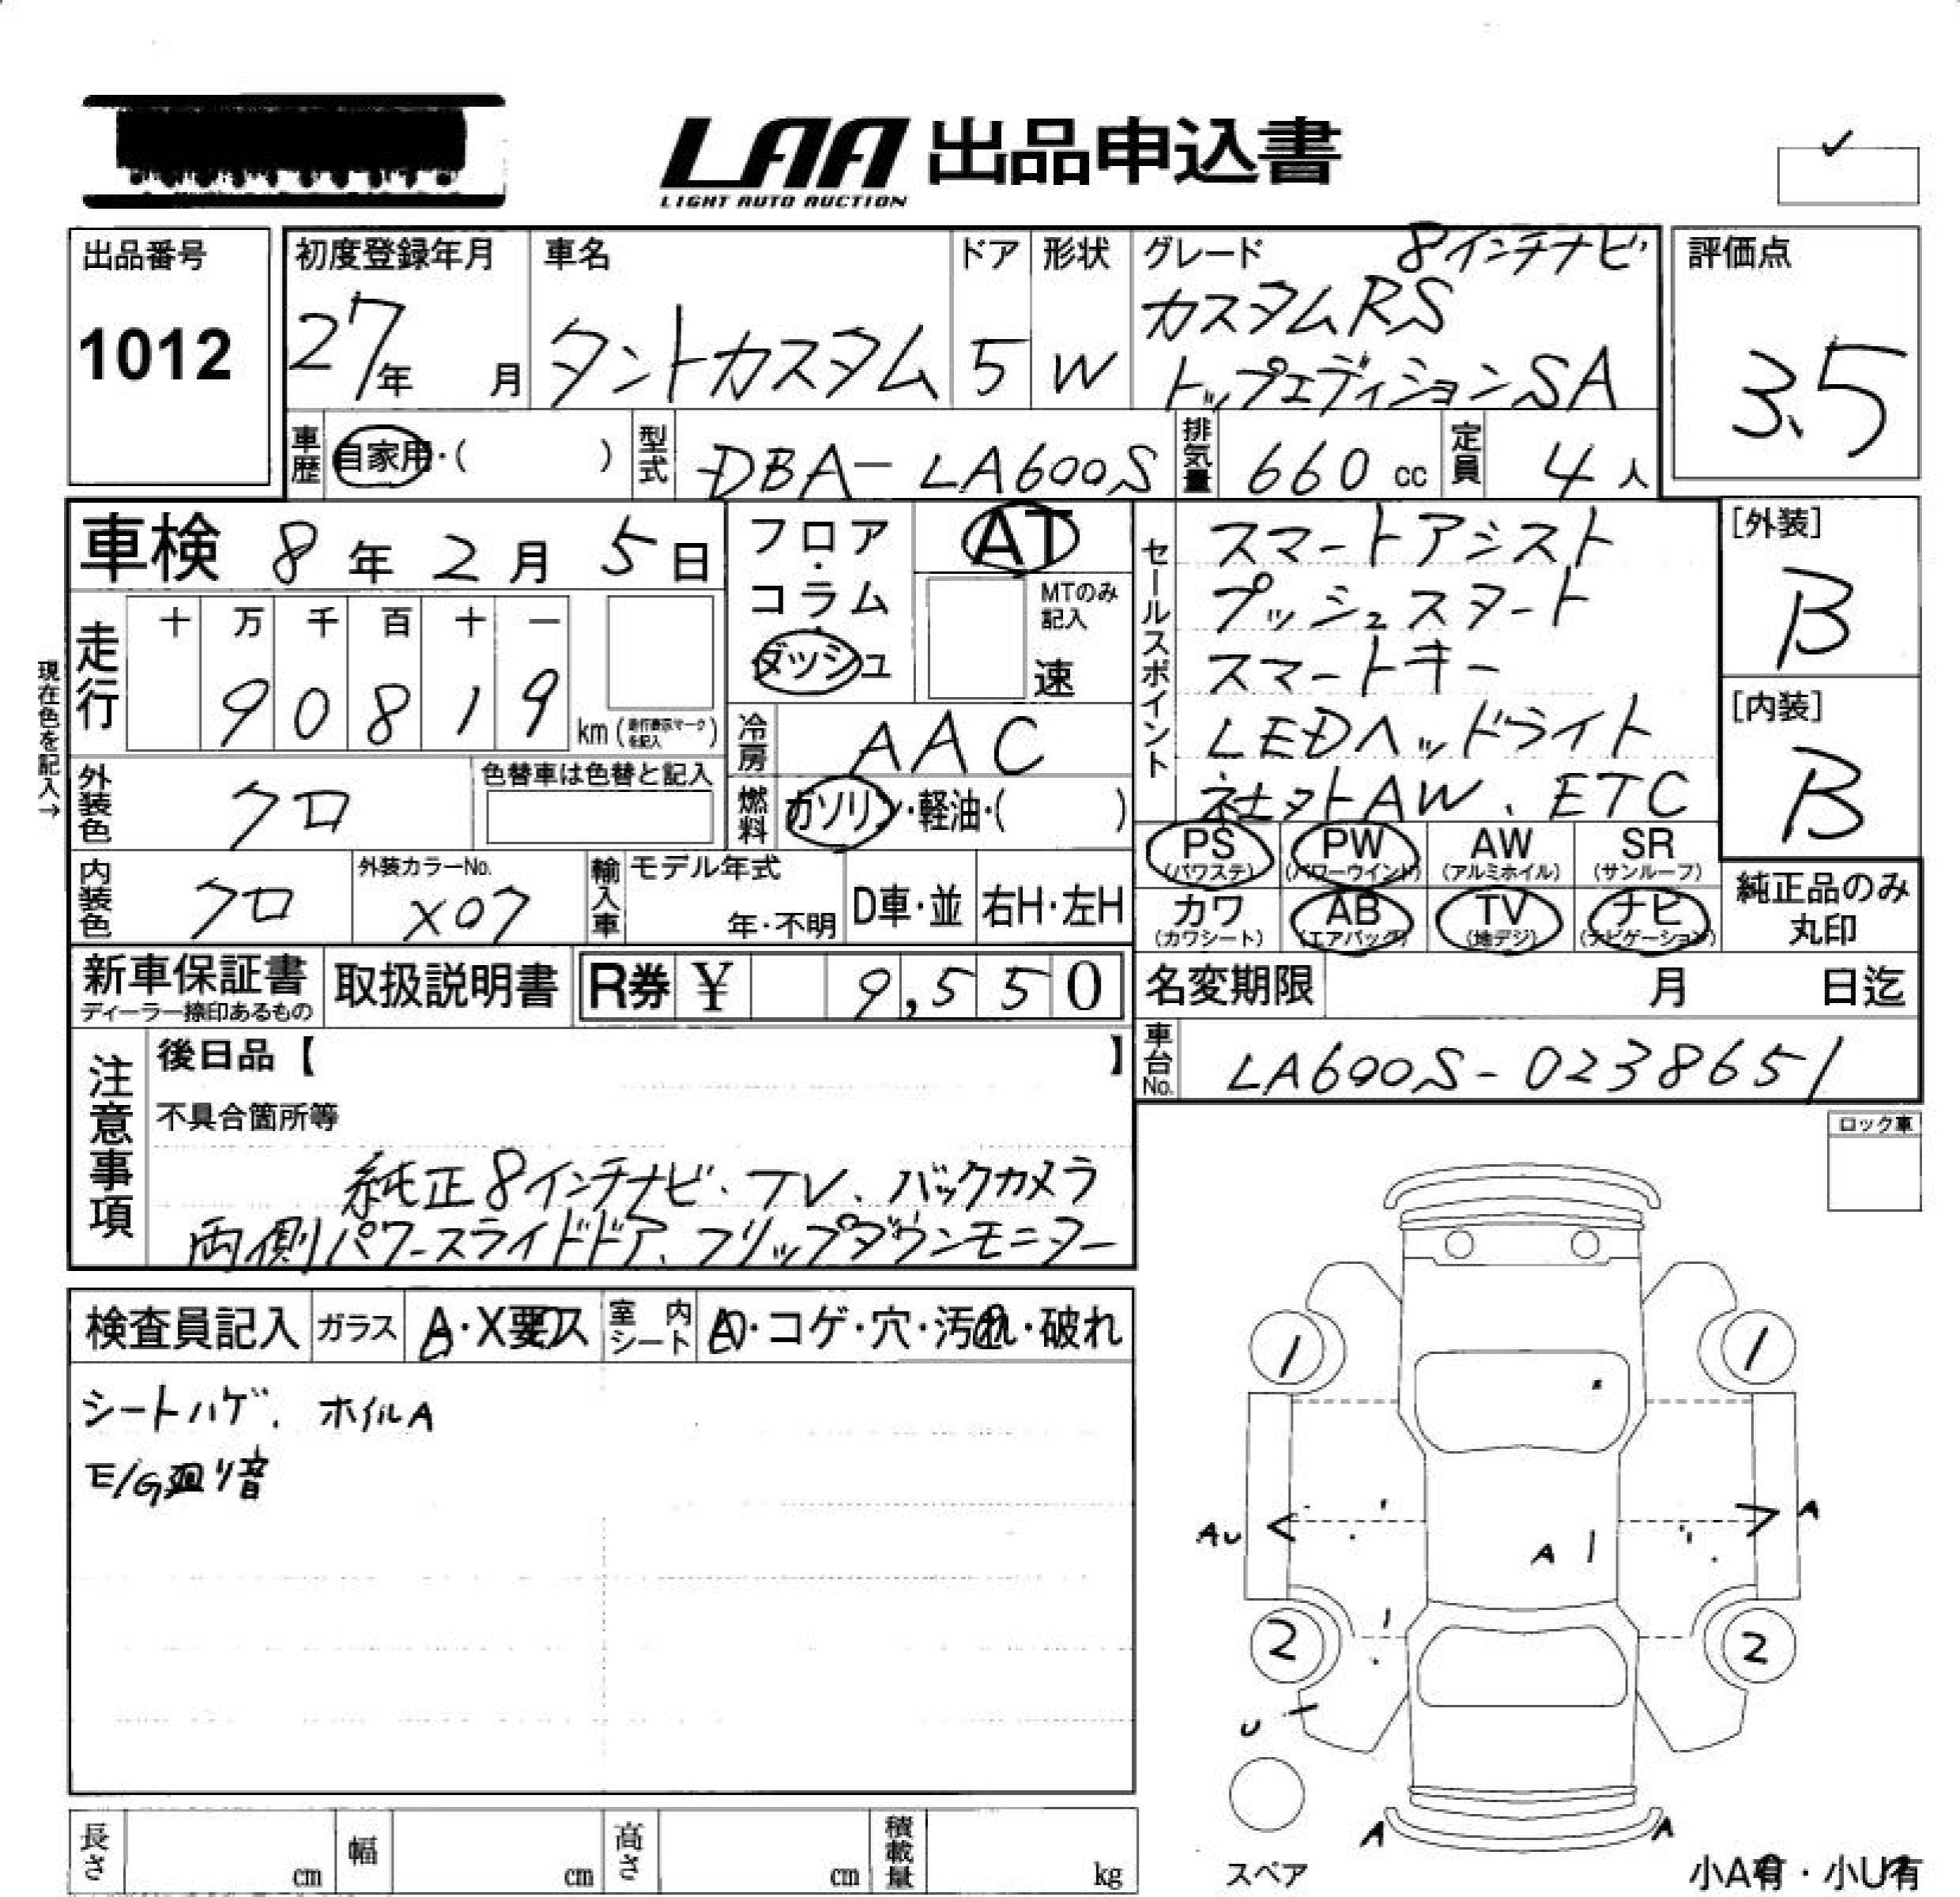 LAA 出品申込書
LIGHT AUTO AUCTION
出品番号
1012
初度登録年月
27年 月
車名
タントカスタム
ドア
5
形状
W
グレード 8インチナビ
カスタムRS
トップエディションSA
評価点
3.5
車歴 自家用・( )
型式 DBA-LA600S
排気量 660 cc
定員 4人
車検 8年2月5日
走行 十 万 千 百 十 一
9 0 8 1 9 km (走行表示マークを記入)
現在色を記入→
外装色 クロ
色替車は色替と記入
内装色 クロ
外装カラーNo.
X07
フロア・コラム・ダッシュ
AT
MTのみ記入
速
冷房 AAC
燃料 ガソリン・軽油・( )
輸入車 モデル年式
年・不明
D車・並 右H・左H
セールスポイント
スマートアシスト
プッシュスタート
スマートキー
LEDヘッドライト
社外AW、ETC
[外装]
B
[内装]
B
PS (パワステ) PW (パワーウインド) AW (アルミホイル) SR (サンルーフ)
カワ (カワシート) AB (エアバック) TV (地デジ) ナビ (ナビゲーション)
純正品のみ
丸印
新車保証書
ディーラー捺印あるもの
取扱説明書
R券 ¥ 9,550
名変期限 月 日迄
車台No. LA600S-0238651
注意事項
後日品【 】
不具合箇所等
純正8インチナビ、TV、バックカメラ
両側パワースライドドア、フリップダウンモニター
ロック車
検査員記入 ガラス A・X要ス 室内シート ・コゲ・穴・汚れ・破れ
シートハゲ、ホイルA
E/G廻り音
1 1
AU A
A
2 2
U
A A
スペア
小A有・小U有
長さ cm 幅 cm 高さ cm 積載量 kg